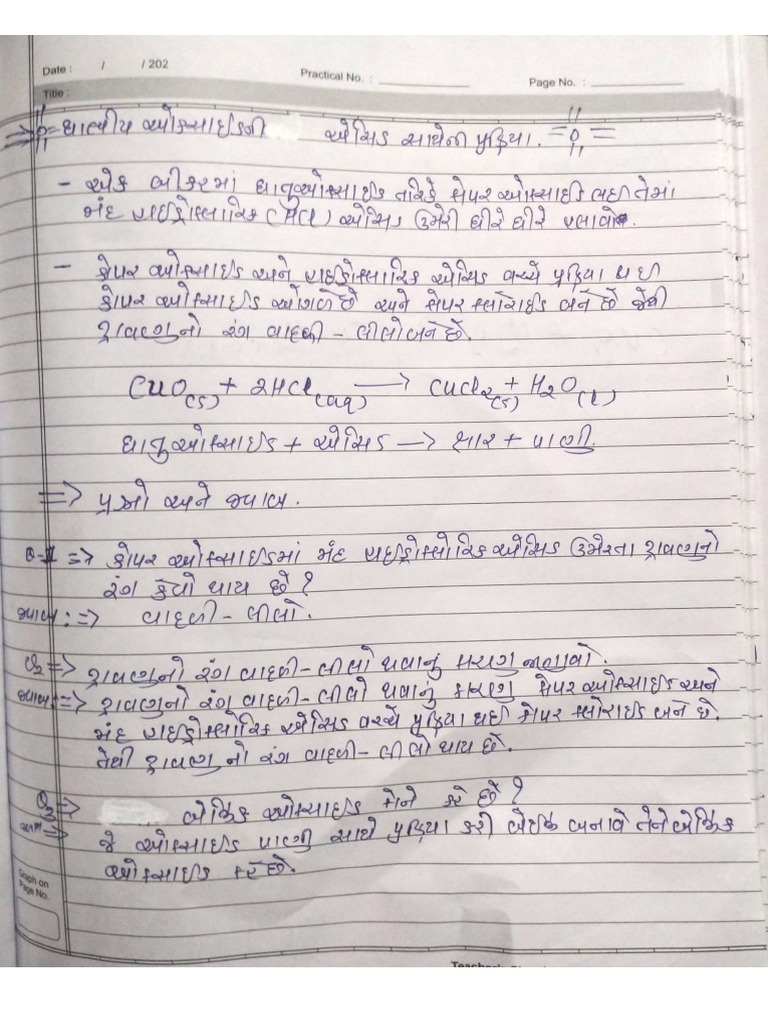 Date : / / 202 Practical No. : Page No. :
Title :
=> ધાત્વીય ઓક્સાઇડની એસિડ સાથેની પ્રક્રિયા.
- એક બીકરમાં ધાતુઓક્સાઇડ તરીકે કોપર ઓક્સાઇડ લઇ તેમાં
મંદ હાઇડ્રોક્લોરિક (HCl) એસિડ ઉમેરી ધીરે ધીરે હલાવો.
- કોપર ઓક્સાઇડ અને હાઇડ્રોક્લોરિક એસિડ વચ્ચે પ્રક્રિયા થઇ
કોપર ઓક્સાઇડ ઓગળે છે અને કોપર ક્લોરાઇડ બને છે જેથી
દ્રાવણનો રંગ વાદળી - લીલો બને છે.
CuO(s) + 2HCl(aq) → CuCl2(s) + H2O(l)
ધાતુઓક્સાઇડ + એસિડ → ક્ષાર + પાણી.
=> પ્રશ્નો અને જવાબ.
Q-1 => કોપર ઓક્સાઇડમાં મંદ હાઇડ્રોક્લોરિક એસિડ ઉમેરતા દ્રાવણનો
રંગ કેવો થાય છે?
જવાબ : => વાદળી - લીલો.
Q2 => દ્રાવણનો રંગ વાદળી - લીલો થવાનું કારણ જણાવો.
જવાબ : => દ્રાવણનો રંગ વાદળી - લીલો થવાનું કારણ કોપર ઓક્સાઇડ અને
મંદ હાઇડ્રોક્લોરિક એસિડ વચ્ચે પ્રક્રિયા થઇ કોપર ક્લોરાઇડ બને છે.
તેથી દ્રાવણનો રંગ વાદળી - લીલો થાય છે.
Q3 => બેઝિક ઓક્સાઇડ કોને કહે છે?
જવાબ => જે ઓક્સાઇડ પાણી સાથે પ્રક્રિયા કરી બેઇઝ બનાવે તેને બેઝિક
ઓક્સાઇડ કહે છે.
Graph on
Page No.